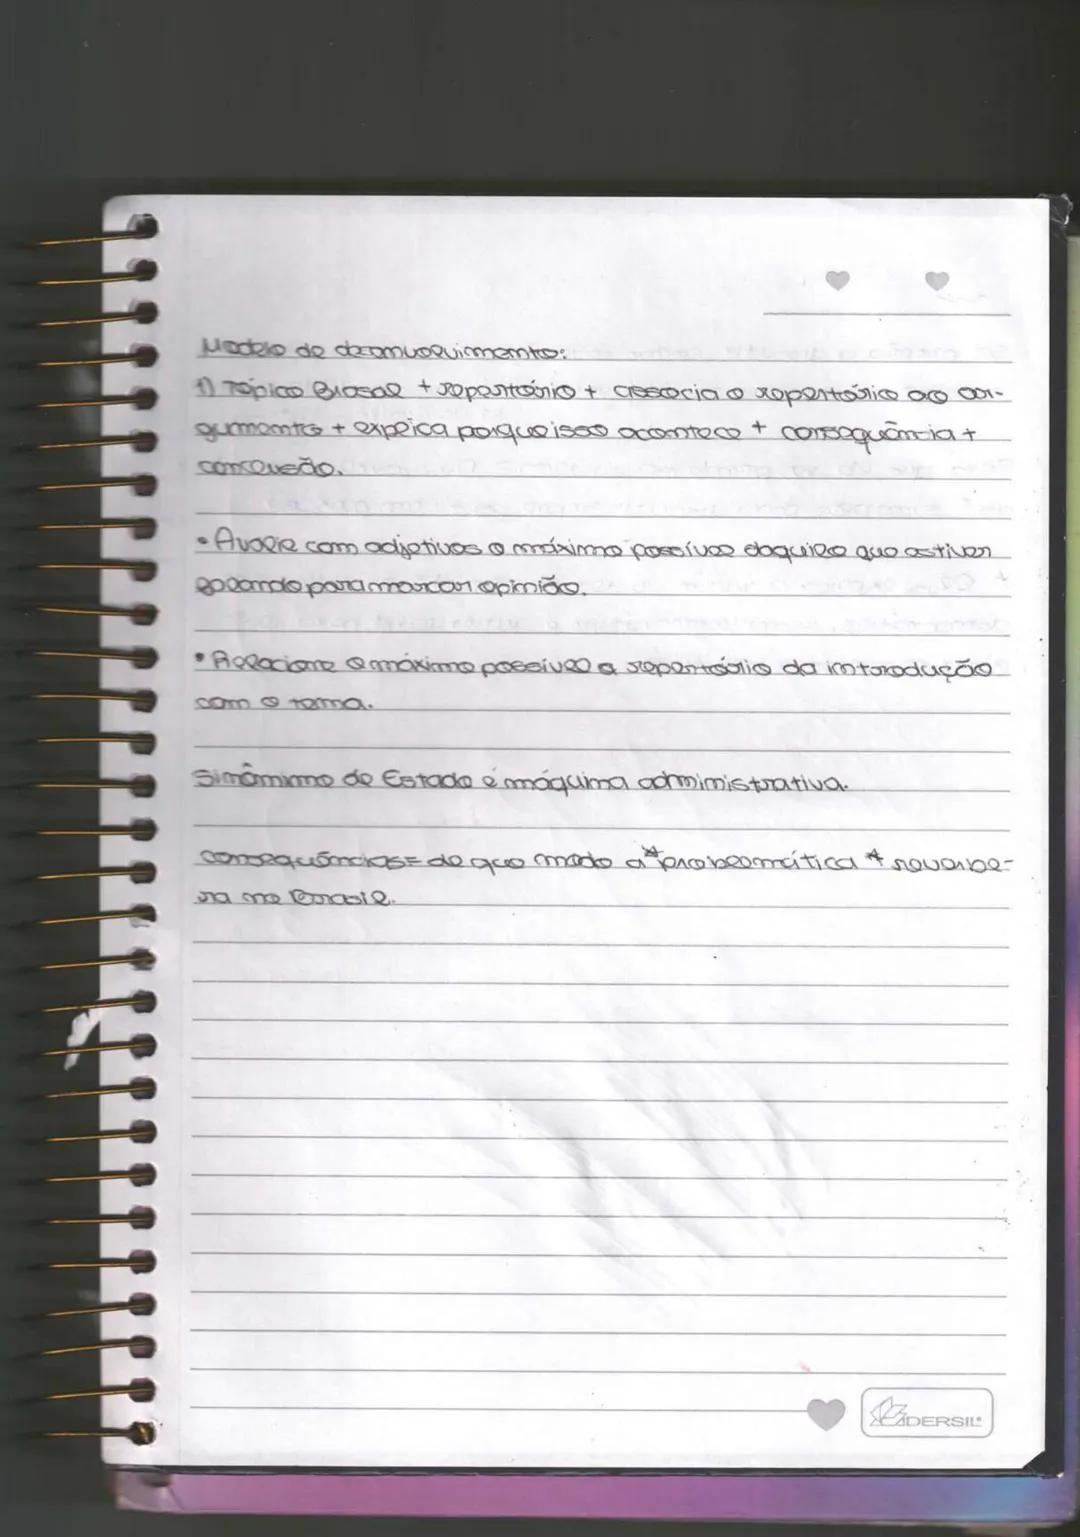 Modelo de desenvolvimento:
1) Tópico frasal + repertório + associa o repertório ao ar-
gumento + explica porque isso acontece + consequência +
conclusão.
• Avalie com adjetivos o máximo possível daquilo que estiver
falando para marcar opinião.
• Relacione o máximo possível o repertório da introdução
com o tema.
Sinônimo de Estado é máquina administrativa.
consequências = de que modo a *problemática* reverbe-
ra no Brasil.